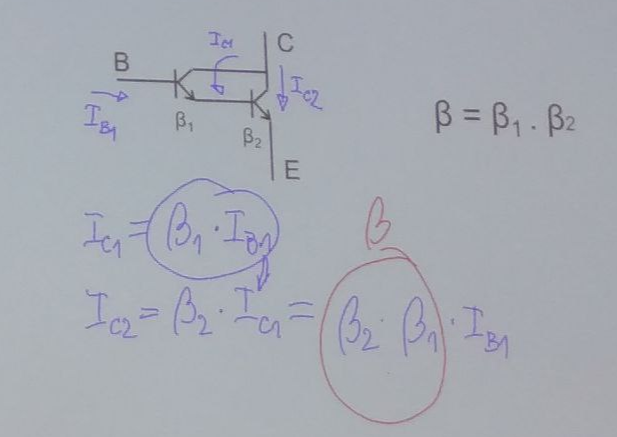 I_C1
C
B
I_C2
I_B1
β₁
β₂
E
β = β₁ . β₂
I_C1 = β₁ · I_B1
β
I_C2 = β₂ · I_C1 = β₂ · β₁ · I_B1